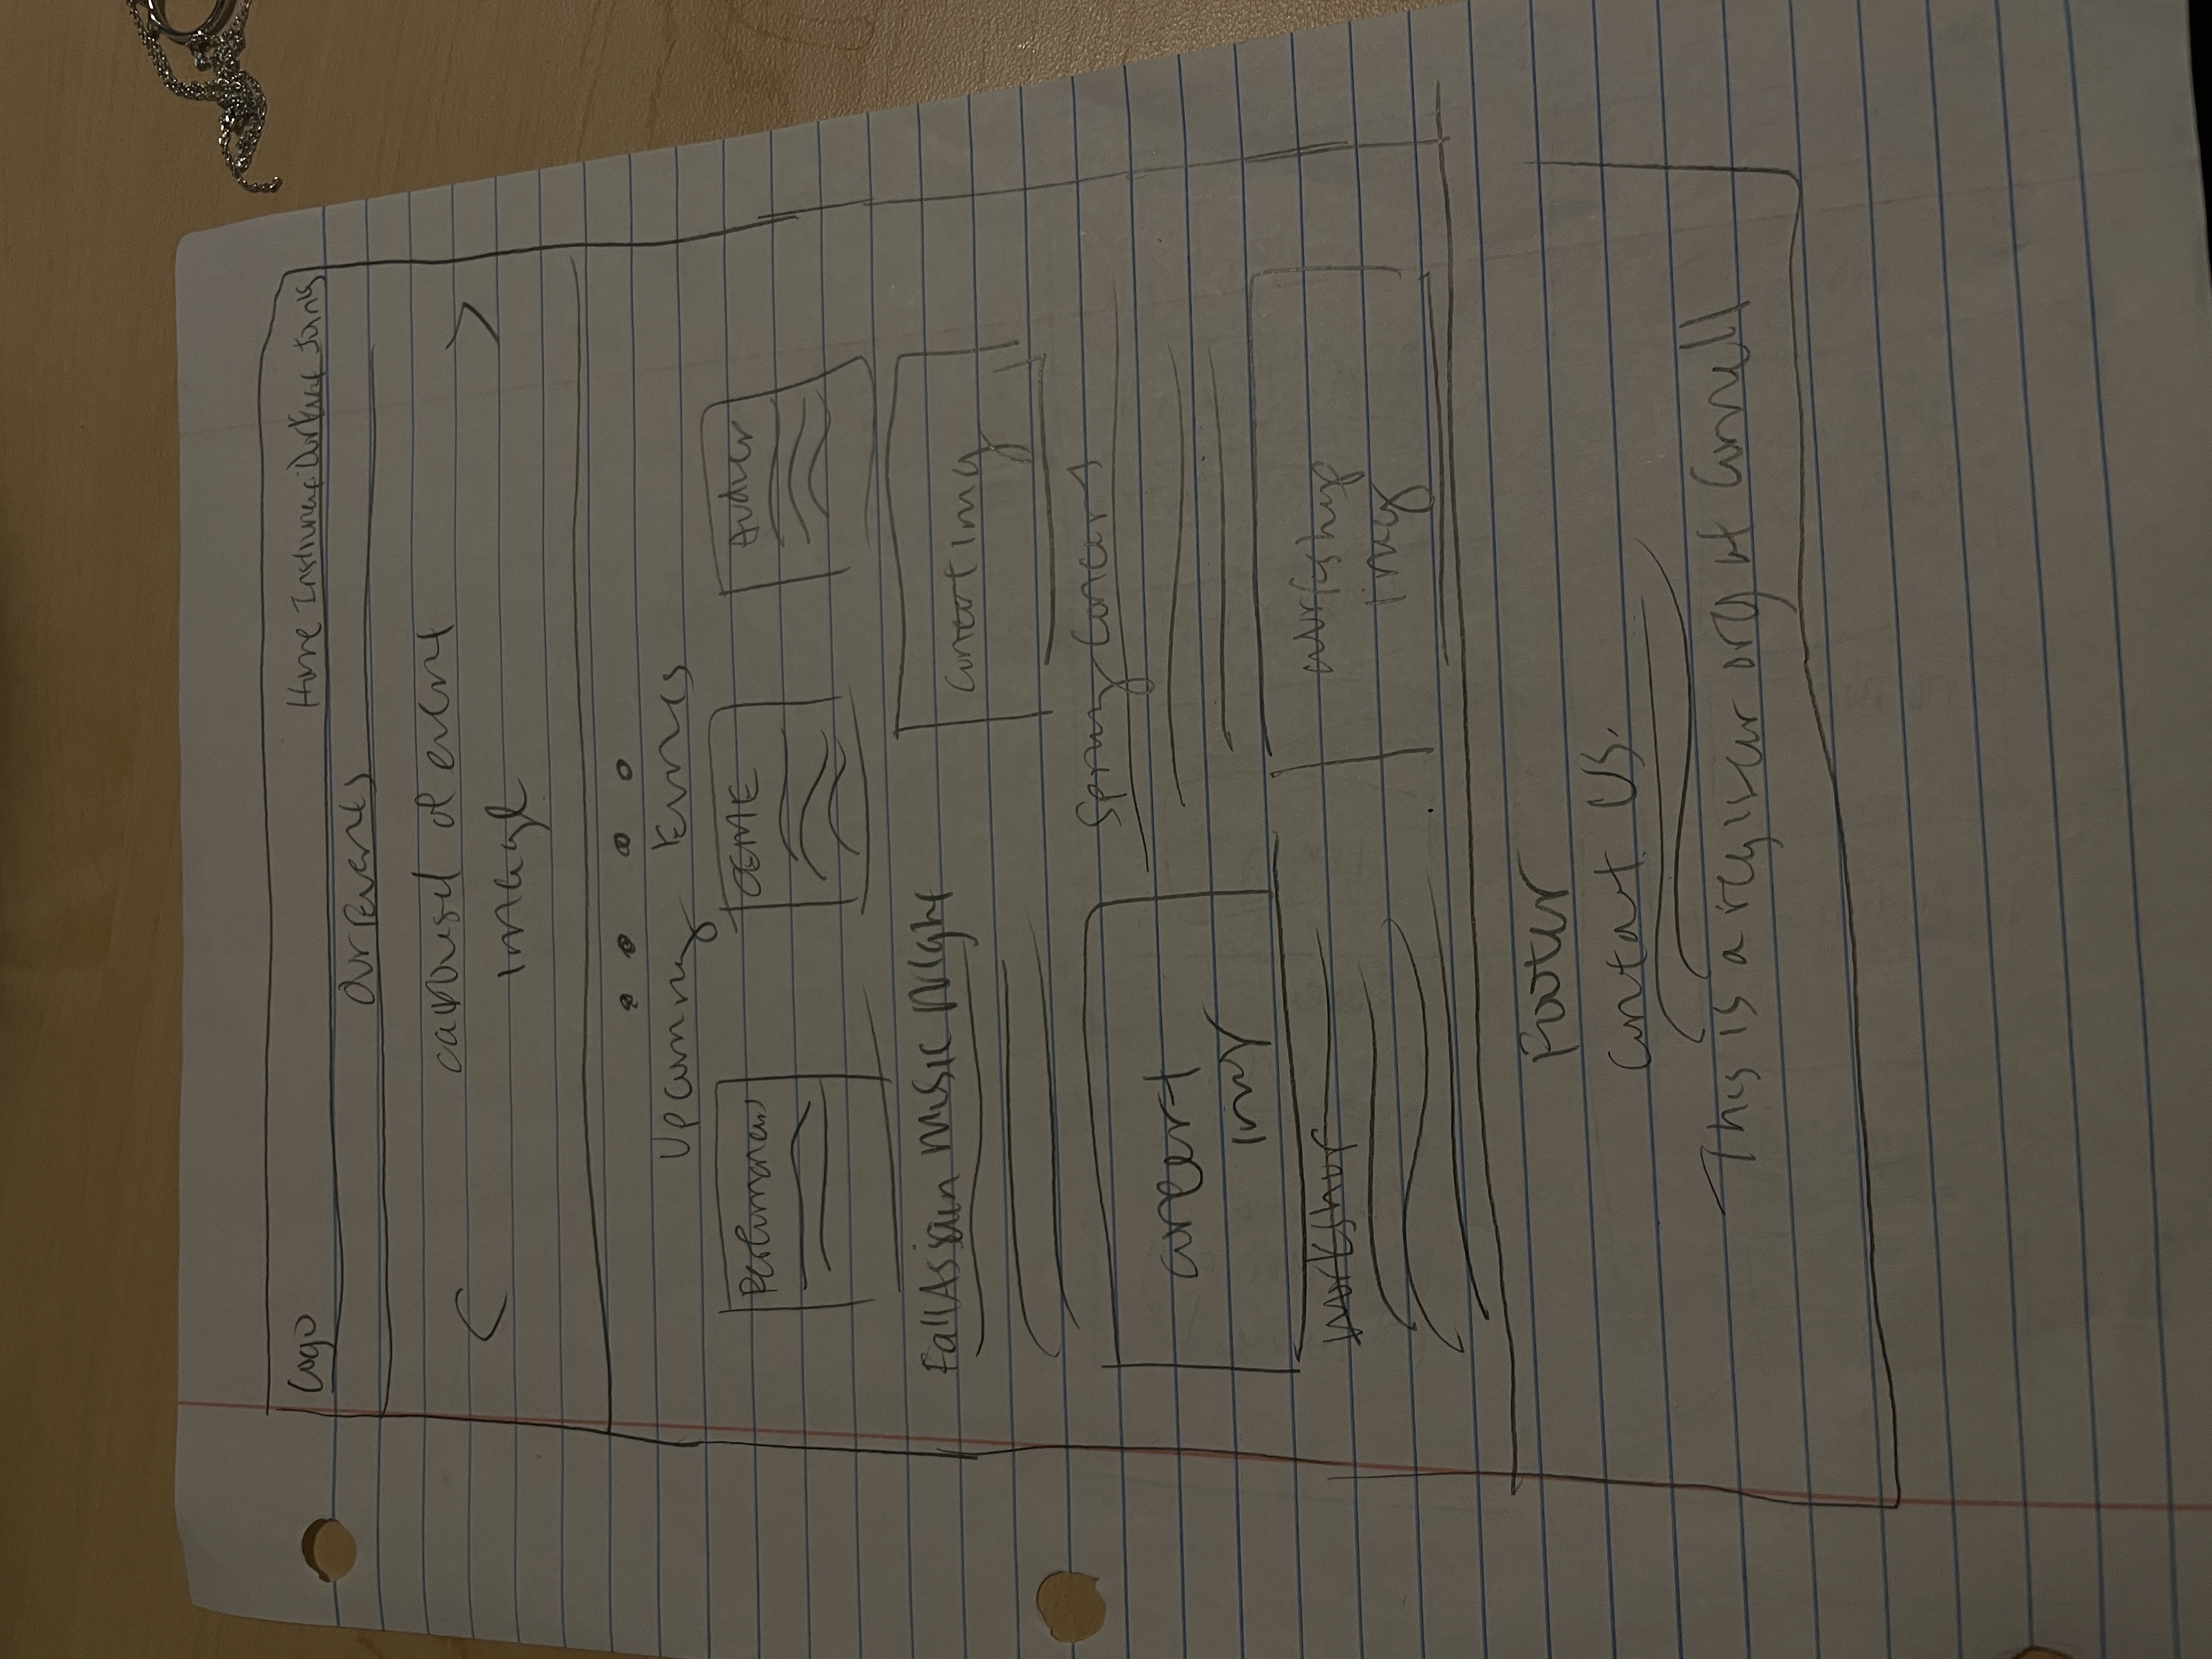 Logo
Home Instrument Our Join Us
Our Events
carousel of event
image
Upcoming Events
Performances
CEME
Fall Asian Music Night
Concert img
Spring Concert
concert
img
workshop
workshop
img
Footer
Contact Us.
This is a register org at Cornell